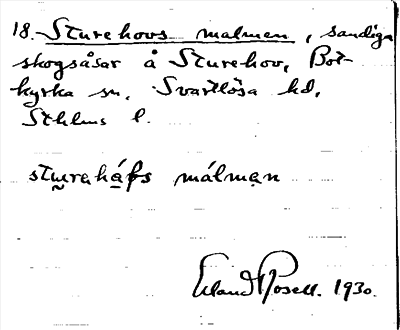 18. Sturehovs malmen, sandiga
skogsåsar å Sturehov, Bot-
kyrka sn. Svartlösa hd,
Sthlms l.
sturahåfs målman
Erland Rosell. 1930.